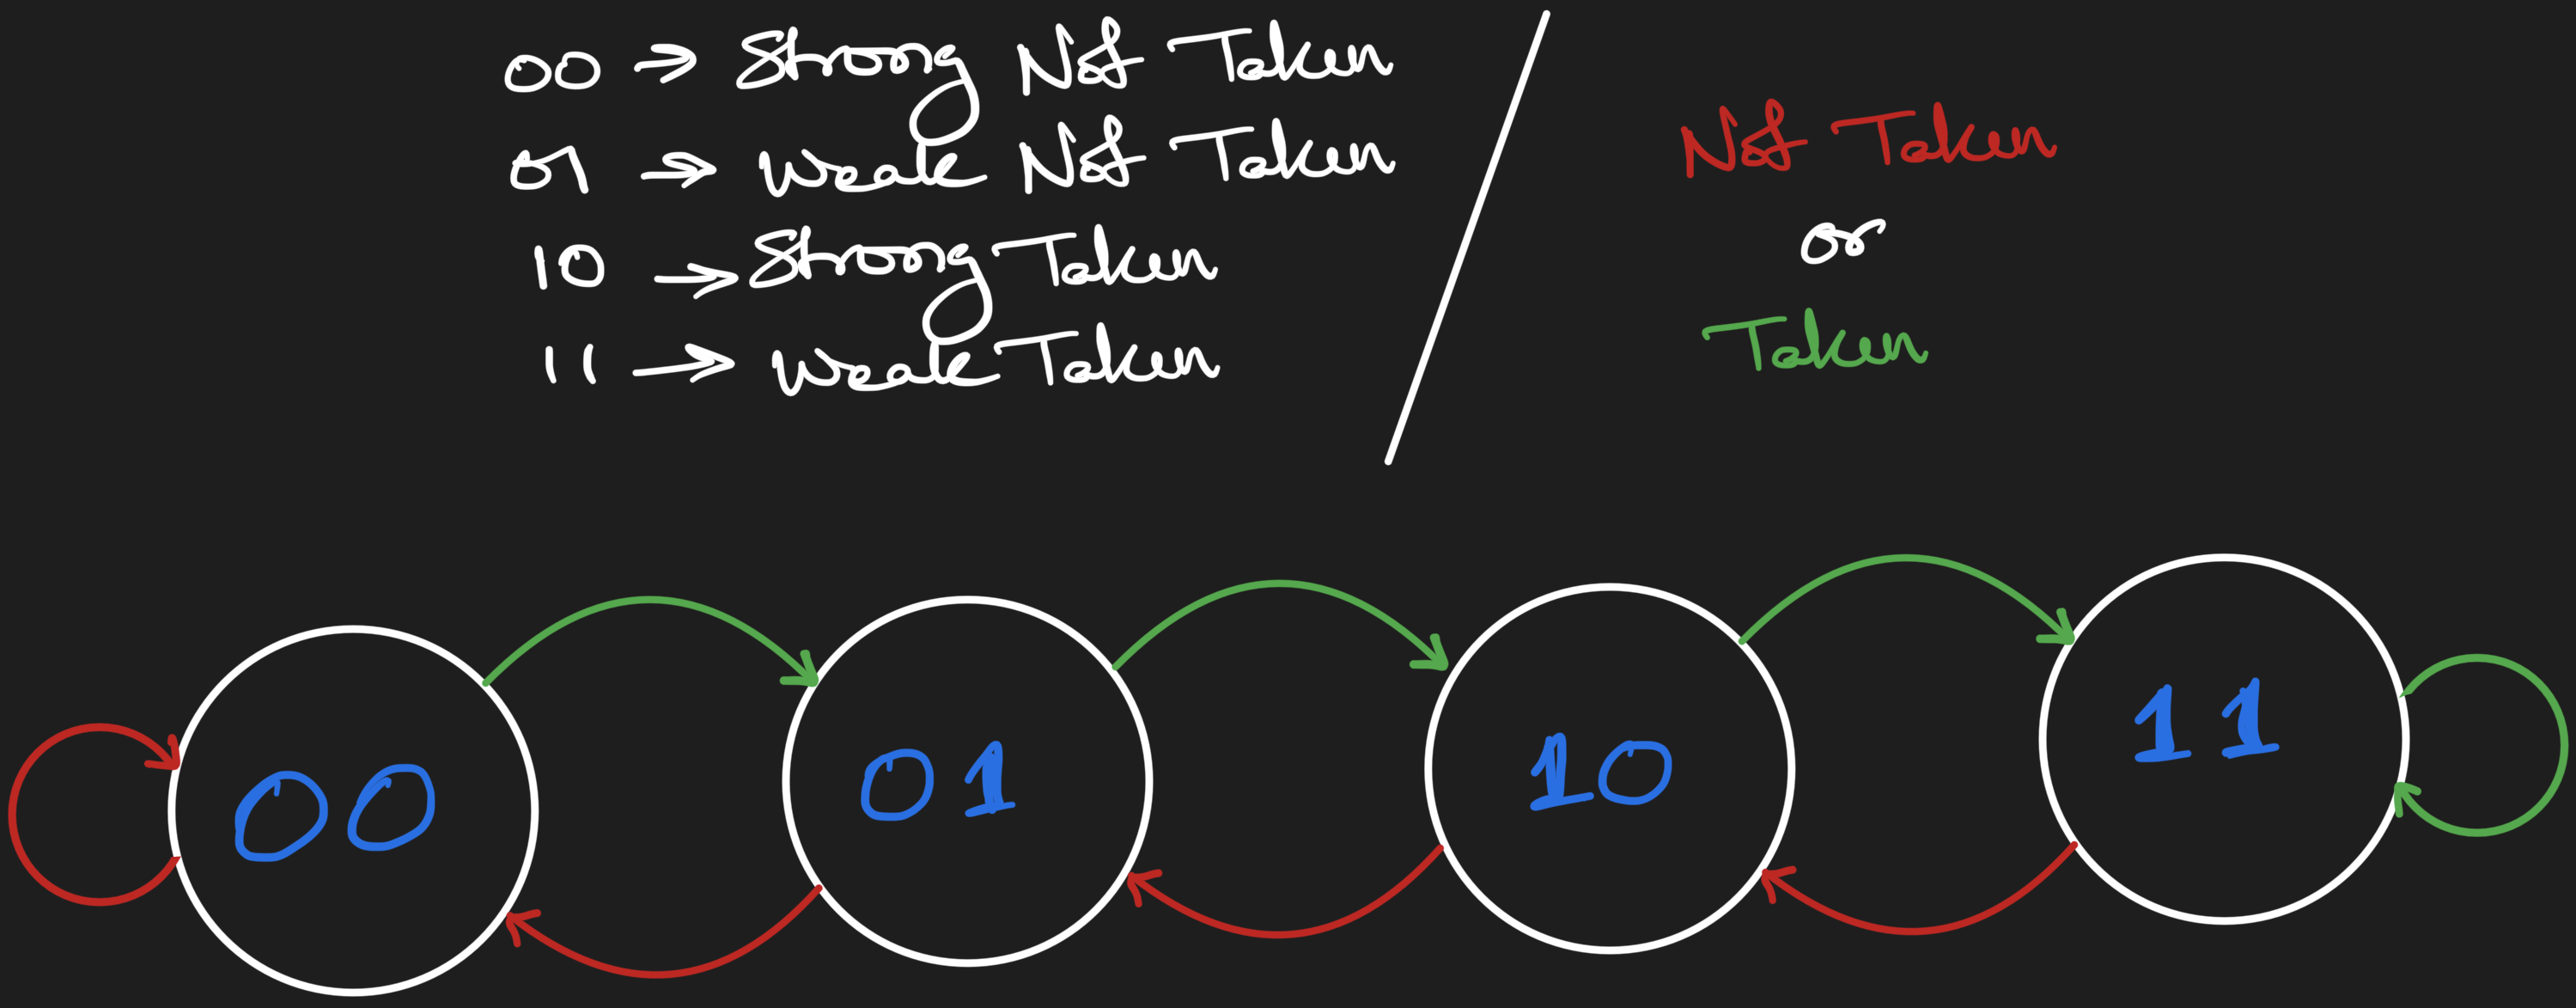 00 ⇒ Strong Not Taken
01 ⇒ Weak Not Taken
10 → Strong Taken
11 → Weak Taken
Not Taken
or
Taken
00
01
10
11